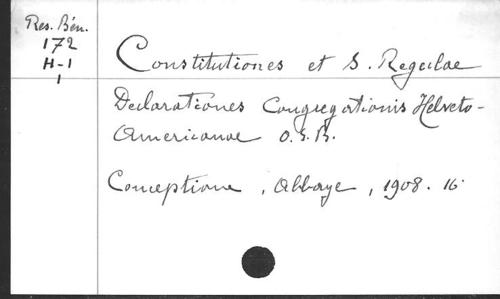 Res. Bén.
172
H-1
1
Constitutiones et S. Regulae
Declarationes Congregationis Helveto-
Americanae O.S.B.
Conceptione, Abbaye, 1908. 16.